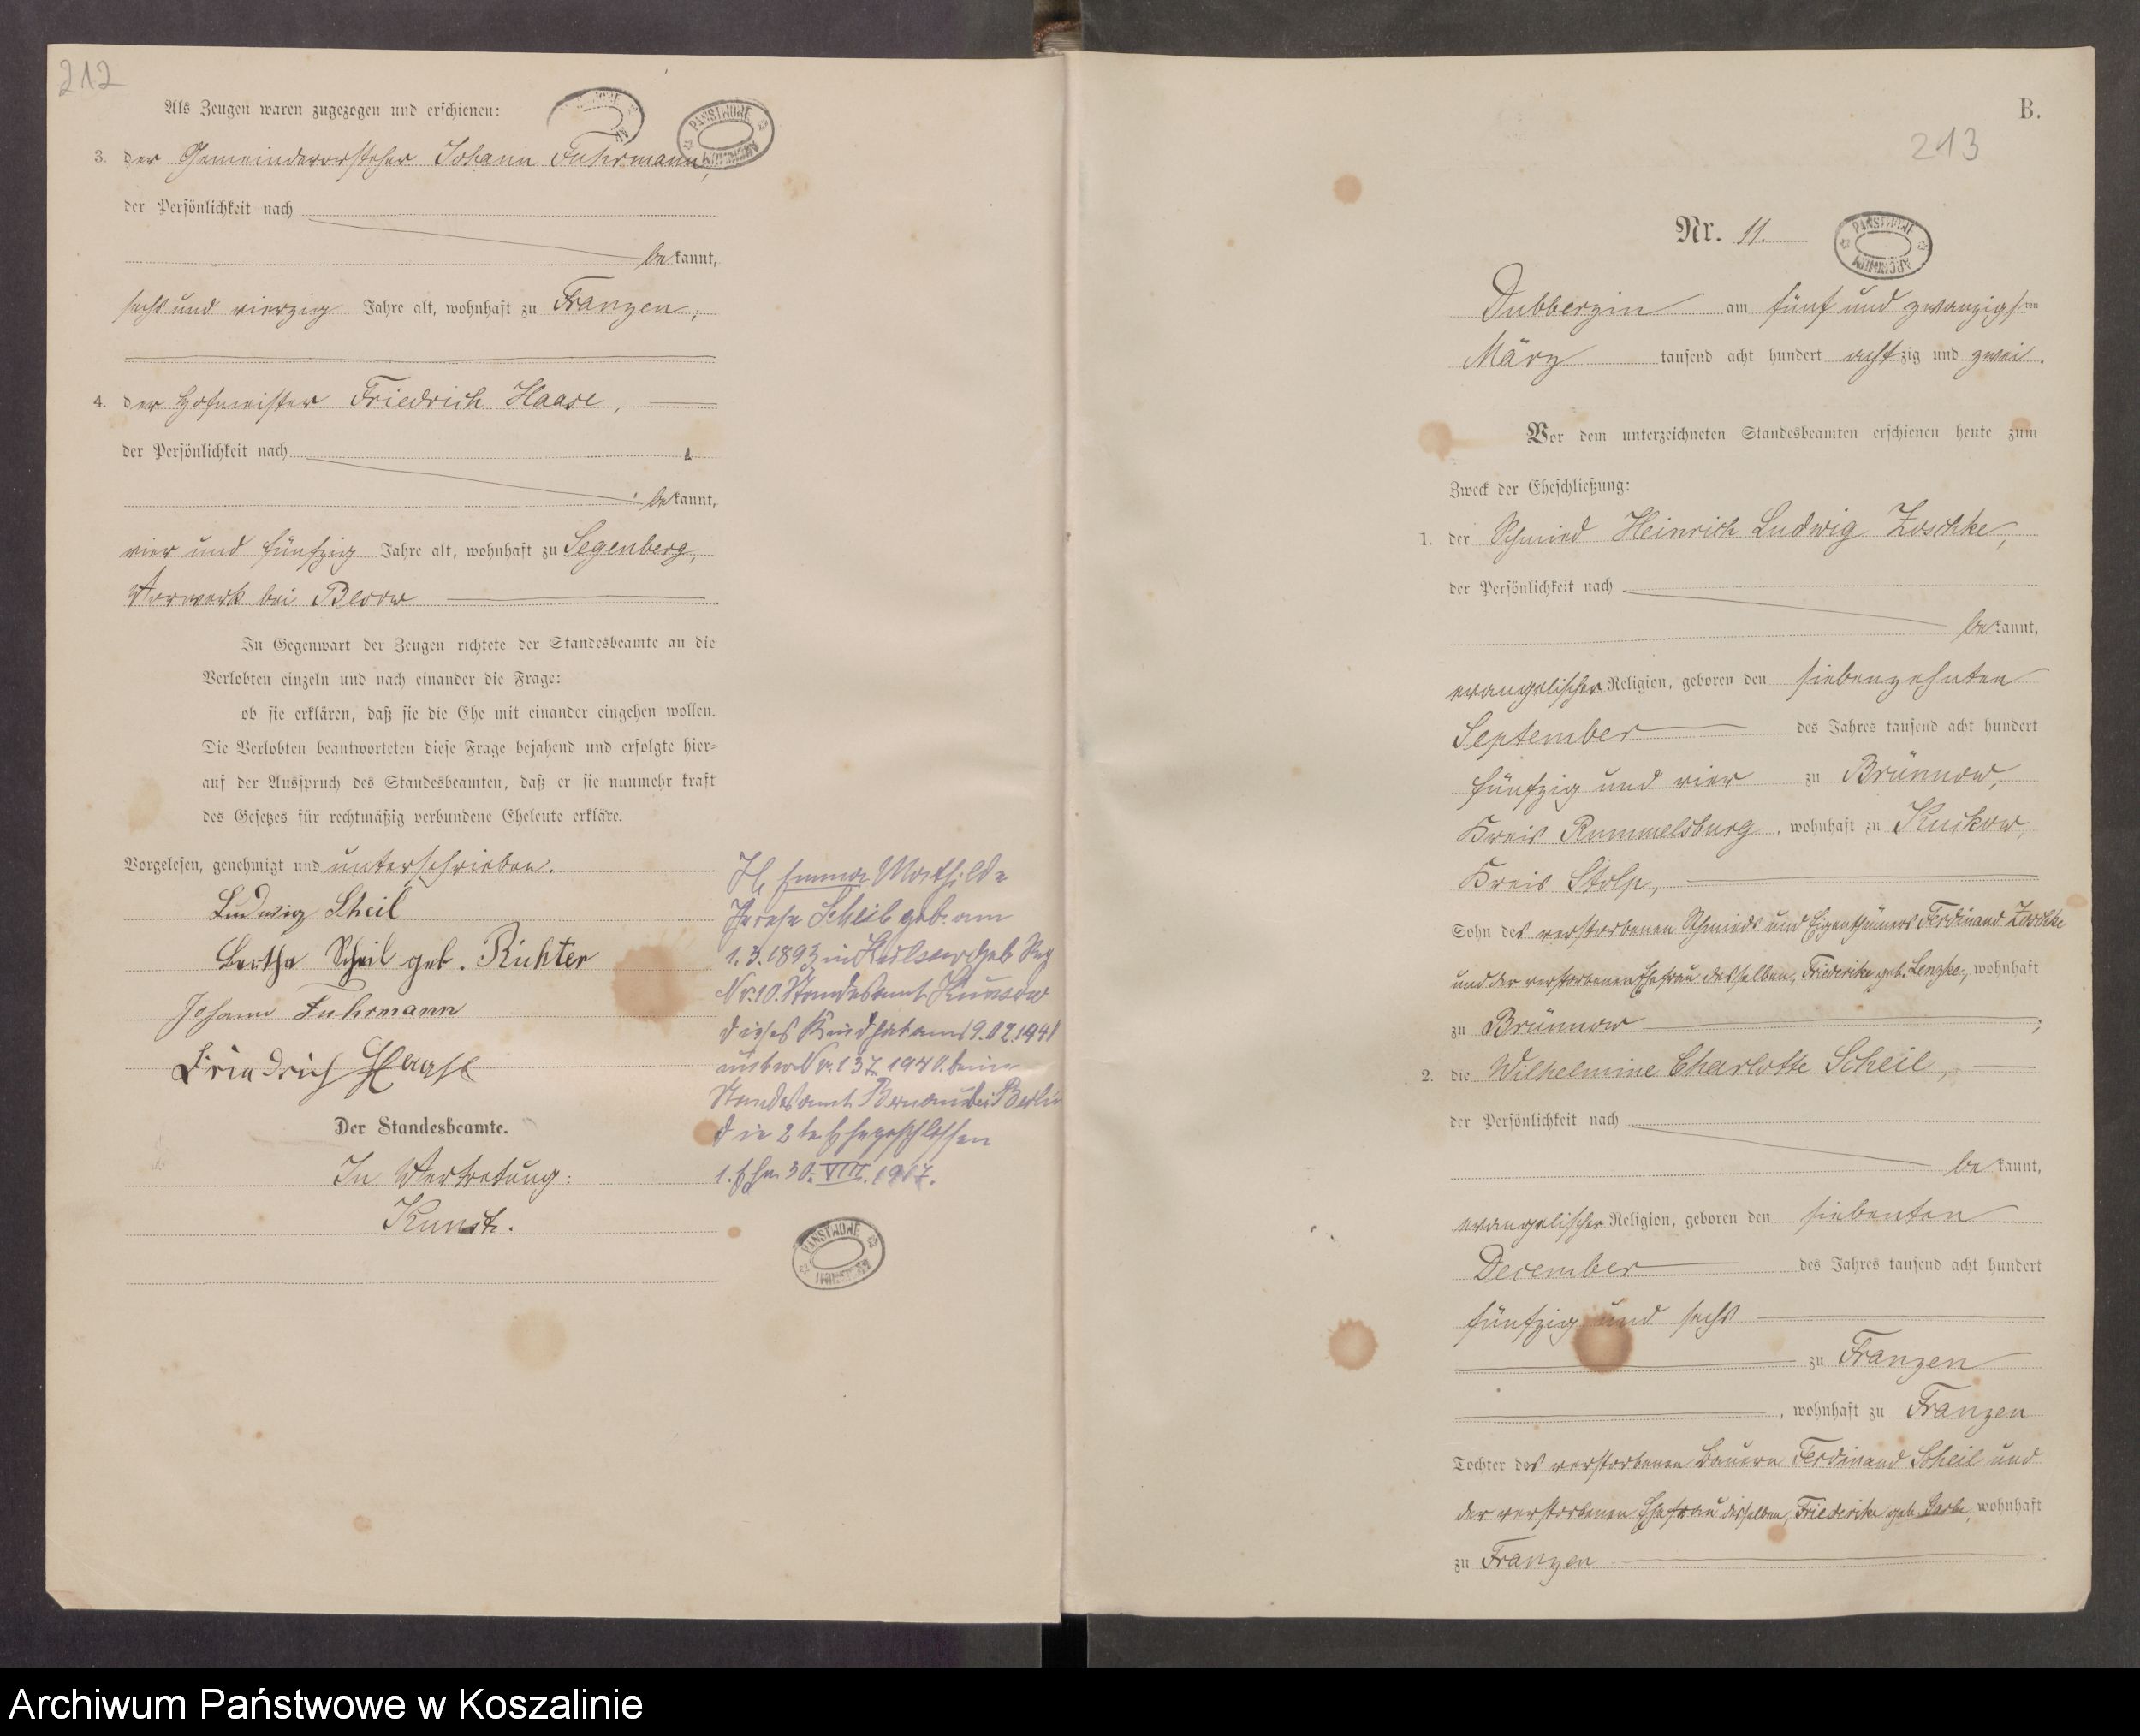 212
Als Zeugen waren zugezogen und erschienen:
PAŃSTWOWE ARCHIWUM
3. der Gemeindevorsteher Johann Fuhrmann,
der Persönlichkeit nach
bekannt,
sechs und vierzig Jahre alt, wohnhaft zu Franzen;
4. der Hofmeister Friedrich Haase,
der Persönlichkeit nach
bekannt,
vier und fünfzig Jahre alt, wohnhaft zu Segenberg,
Vorwerk bei
In Gegenwart der Zeugen richtete der Standesbeamte an die
Verlobten einzeln und nach einander die Frage:
ob sie erklären, daß sie die Ehe mit einander eingehen wollen.
Die Verlobten beantworteten diese Frage bejahend und erfolgte hier-
auf der Ausspruch des Standesbeamten, daß er sie nunmehr kraft
des Gesetzes für rechtmäßig verbundene Eheleute erkläre.
Vorgelesen, genehmigt und unterschrieben.
Ludwig Scheil
Bertha Scheil geb. Richter
Johann Fuhrmann
Friedrich Haase
Der Standesbeamte.
In Vertretung:
Kunst.
Emma Mathilde
Scheil geb. am
1.3.1893 in
Nr. 10. Standesamt
dieses Kind hat am 19.02.1941
unter Nr. 137 1940. beim
Standesamt Bernau bei Berlin
die 2te Ehe geschlossen
1. Ehe 30. VIII. 1917.
PAŃSTWOWE ARCHIWUM
B.
213
Nr. 11.
PAŃSTWOWE ARCHIWUM
Dubberzin am fünf und zwanzigsten
März tausend acht hundert achtzig und zwei.
Vor dem unterzeichneten Standesbeamten erschienen heute zum
Zweck der Eheschließung:
1. der Schmied Heinrich Ludwig Zoschke,
der Persönlichkeit nach
bekannt,
evangelischer Religion, geboren den siebenzehnten
September des Jahres tausend acht hundert
fünfzig und vier zu Brünnow,
Kreis Rummelsburg, wohnhaft zu Kuckow,
Kreis Stolp,
Sohn des verstorbenen Schmieds und Eigenthümers Ferdinand Zoschke
und der verstorbenen Ehefrau desselben, Friederike geb. Lenzke, wohnhaft
zu Brünnow;
2. die Wilhelmine Charlotte Scheil,
der Persönlichkeit nach
bekannt,
evangelischer Religion, geboren den siebenten
December des Jahres tausend acht hundert
fünfzig und sechs
zu Franzen
, wohnhaft zu Franzen
Tochter des verstorbenen Bauern Ferdinand Scheil und
der verstorbenen Ehefrau desselben, Friederike geb. wohnhaft
zu Franzen
Archiwum Państwowe w Koszalinie